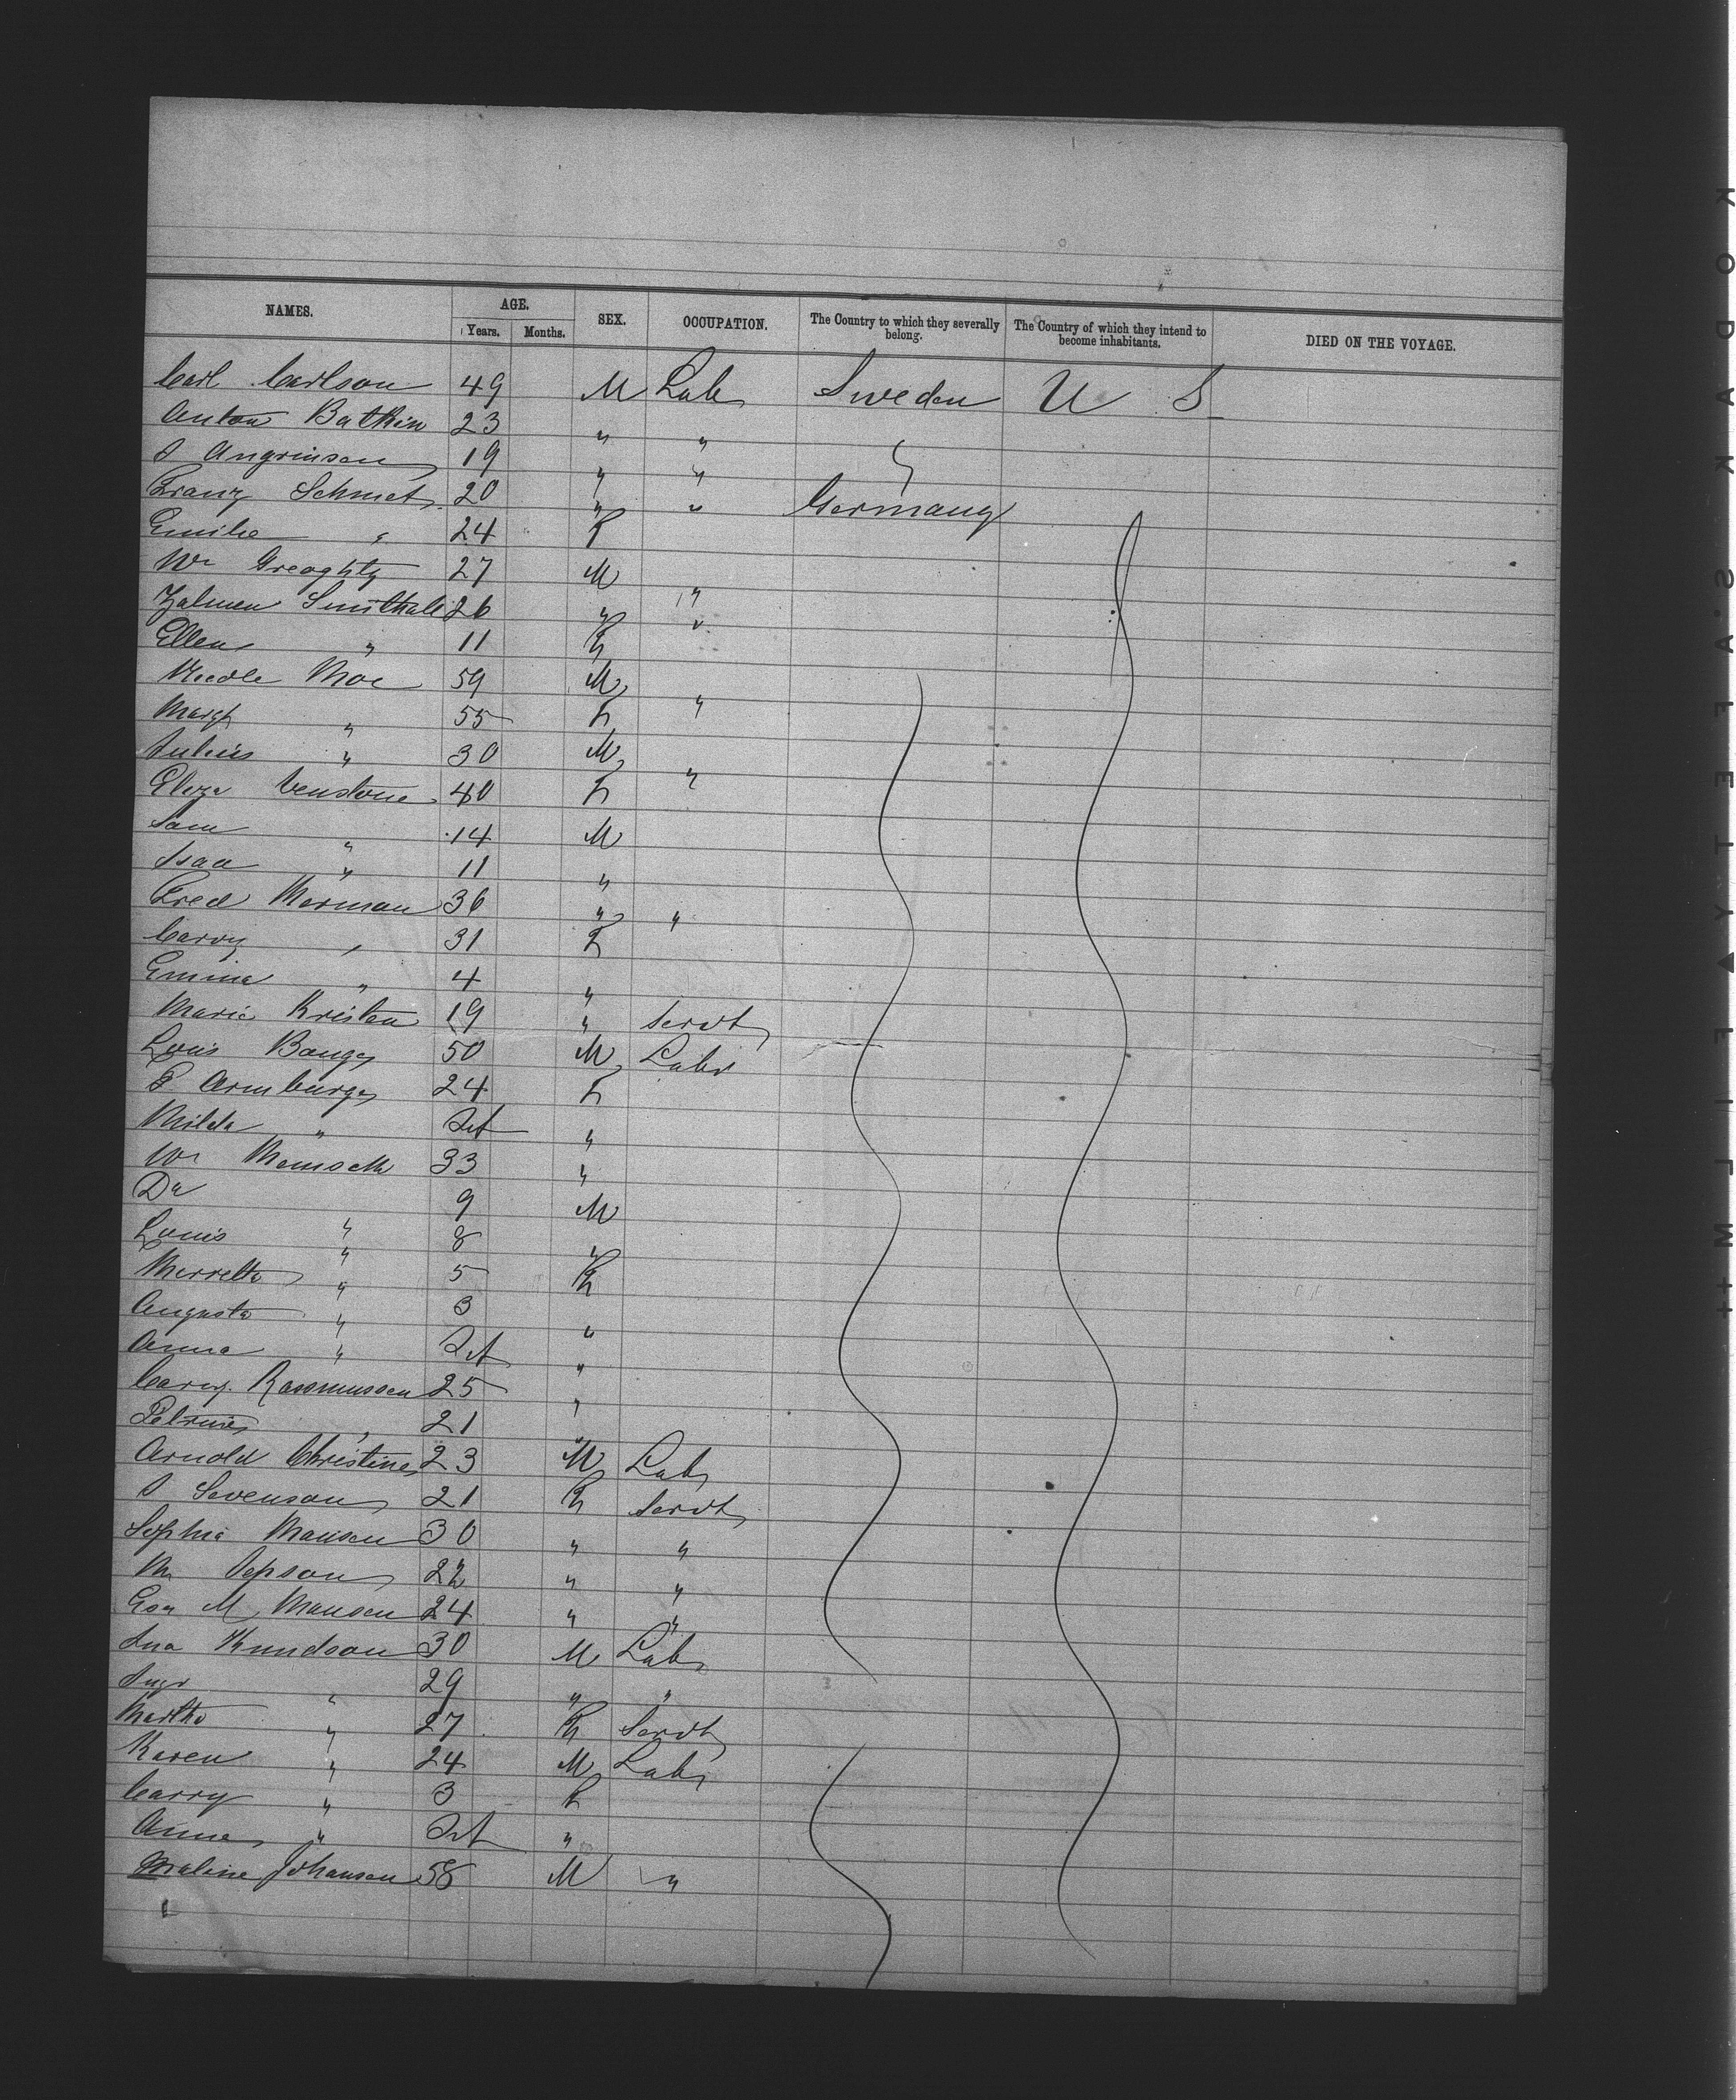 NAMES. AGE. SEX. OCCUPATION. The Country to which they severally belong. The Country of which they intend to become inhabitants. DIED ON THE VOYAGE.
Years. Months.
Carl Carlson 49 M Lab Sweden U S
Anton Bathin 23 " "
S Angrinsen 19 " "
Franz Schmet 20 " " Germany
Emilie " 24 F
Wm Greaghty 27 M "
Zalmen Smithals 26 " "
Ellen " 11 F
Moe 59 M "
Margt " 55 F
Julius " 30 M "
Eliza Venstone 40 F
Sam " 14 M
Isaa " 11 "
Fred Merman 36 " "
Carry " 31 F
Emma " 4 "
Marie Kristen 19 " Servt
Louis Bangs 50 M Labr
P Armburgs 24 F
Milda " Inf "
Wm 33 "
Da " 9 M
Louis " 8 "
Merretta " 5 F
Augusta " 3 "
Anna " Inf "
Carry Rasmussen 25 "
" 21 "
Arnold Christines 23 M Lab
S Sevenson 21 F Servt
Sophia Hansen 30 " "
M Jepson 22 " "
M Hansen 24 " "
Ina Knudson 30 M Lab
" 29 " "
Martha " 27 F Servt
Karen " 24 M Lab
Carry " 3 F
Anna " Inf "
Maline Johansen 58 M "
KODAK SAFETY FILM